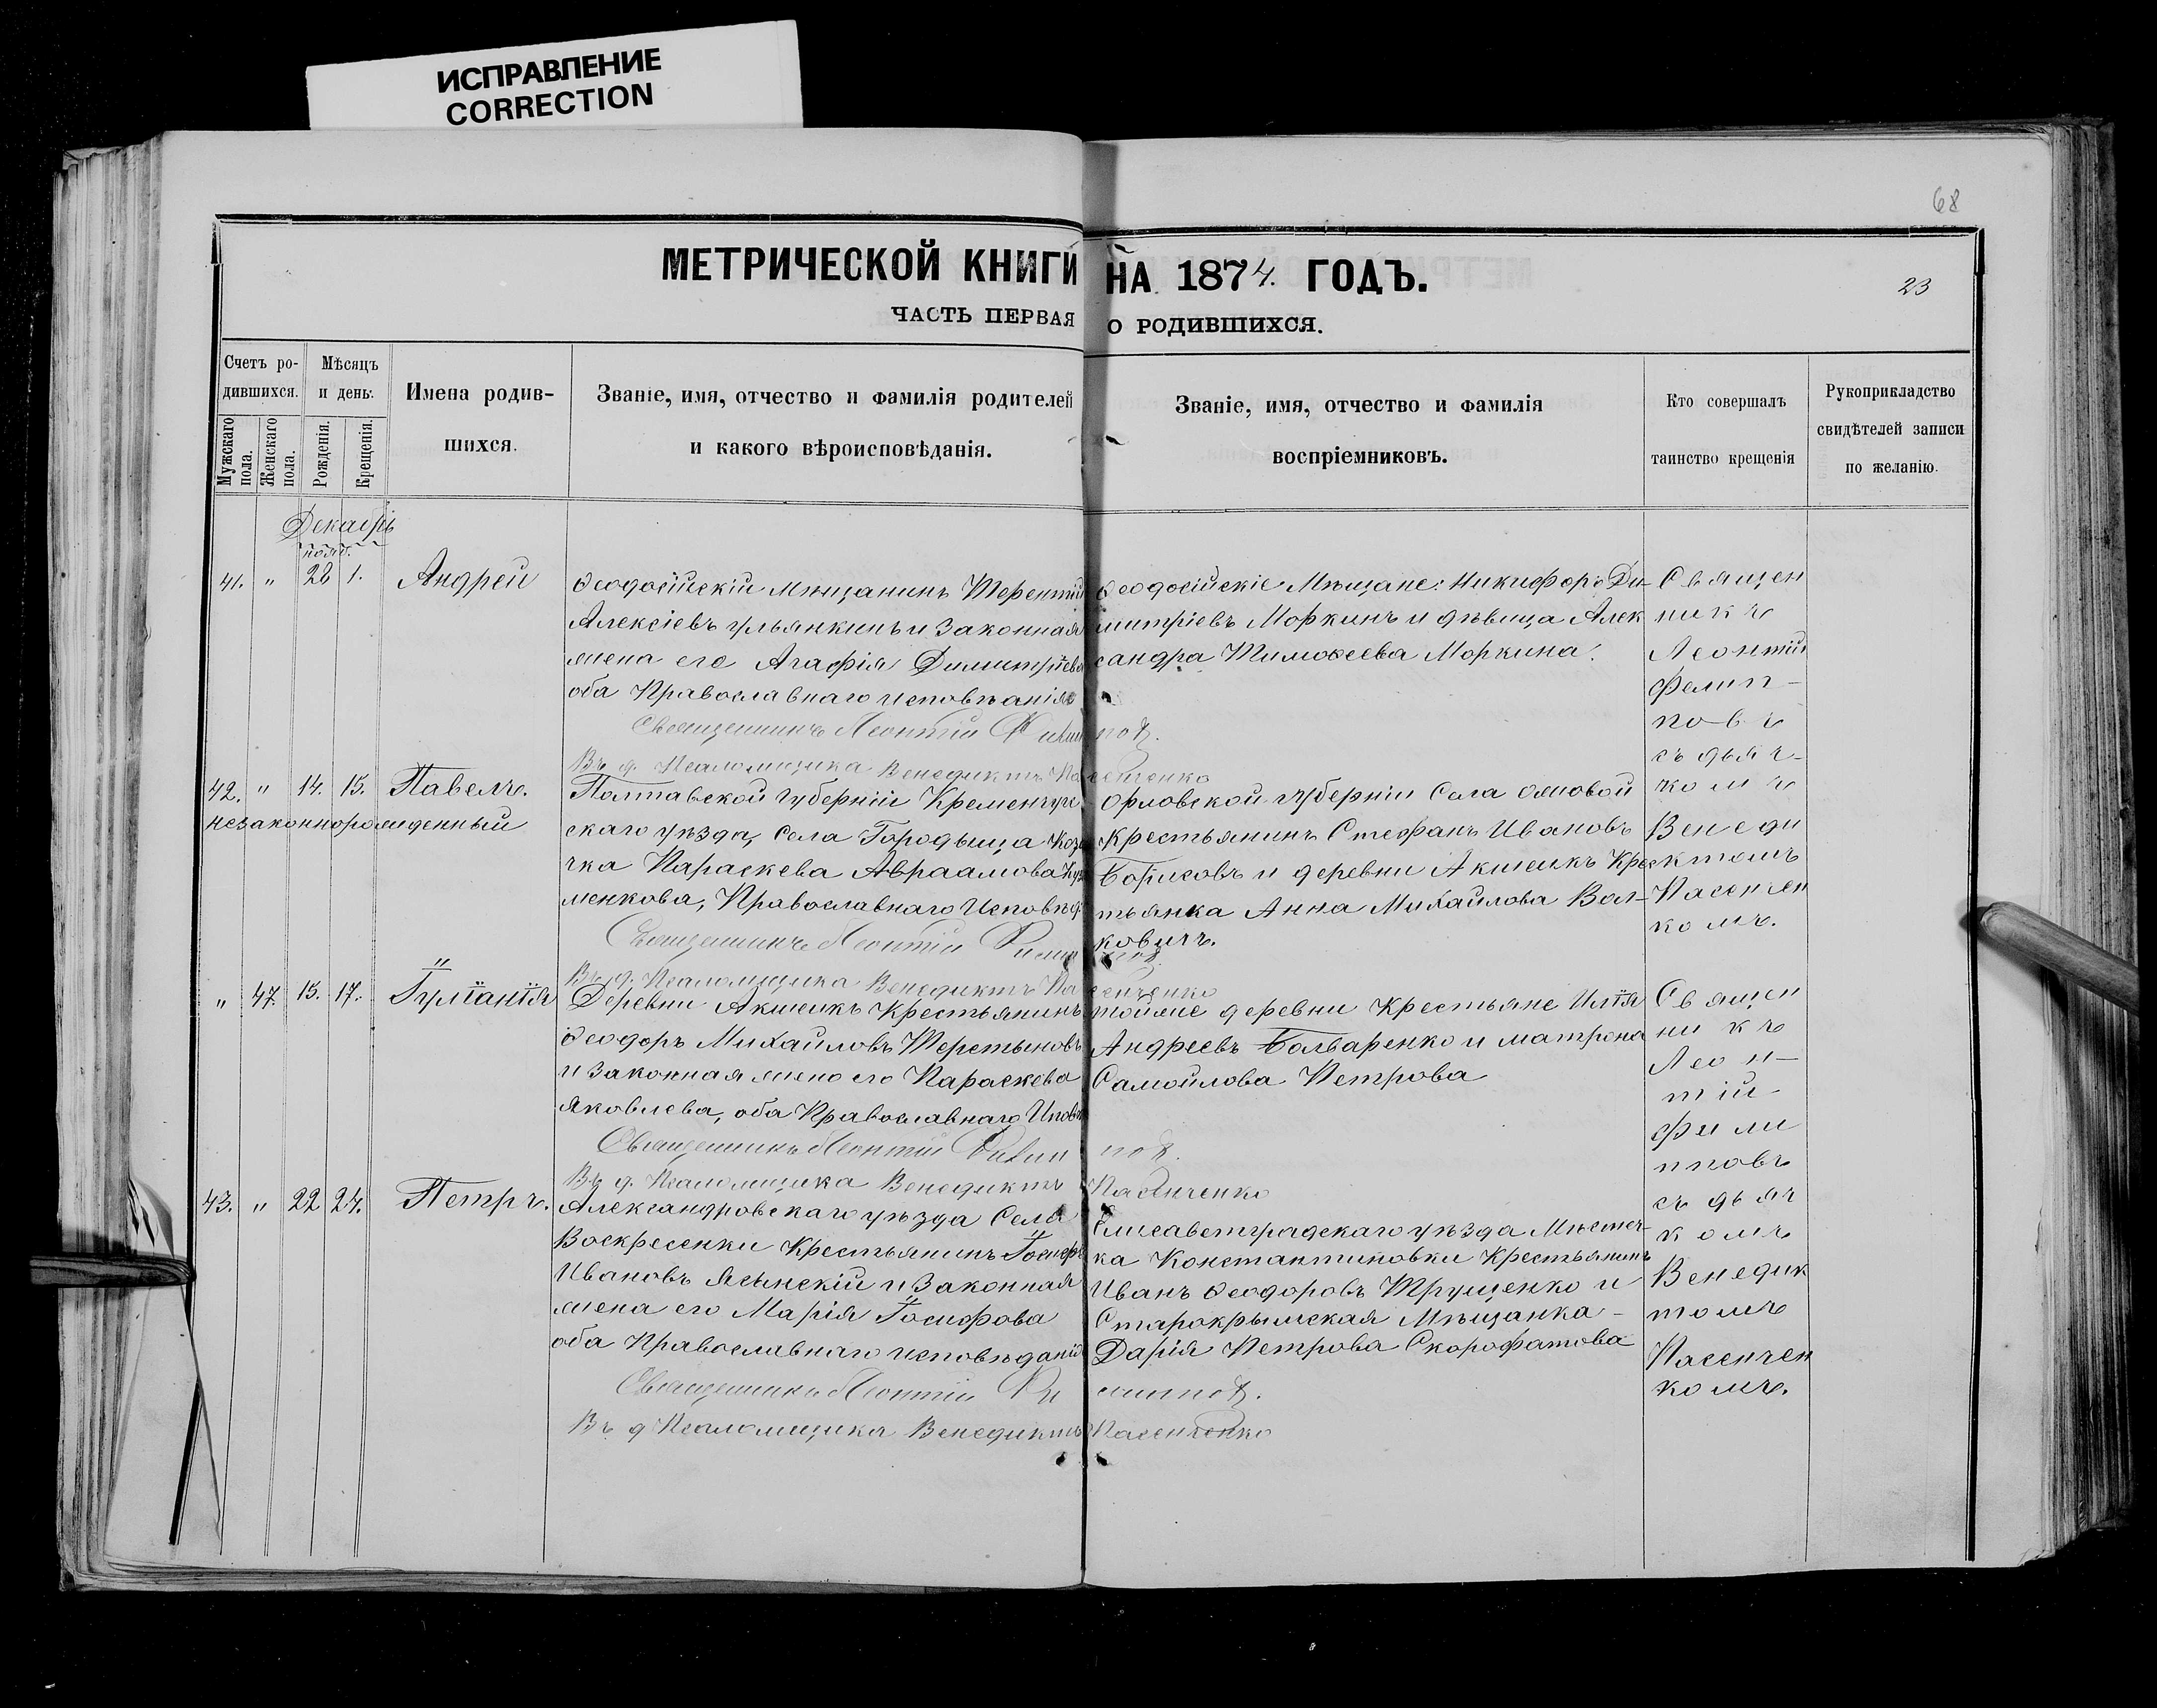 ИСПРАВЛЕНИЕ
CORRECTION
68
МЕТРИЧЕСКОЙ КНИГИ НА 1874. ГОДЪ.
23
ЧАСТЬ ПЕРВАЯ О РОДИВШИХСЯ.
Счетъ ро-
дившихся.
Мужскаго пола.
Женскаго пола.
Мѣсяцъ
и день.
Рожденія.
Крещенія.
Имена родив-
шихся.
Званіе, имя, отчество и фамилія родителей
и какого вѣроисповѣданія.
Званіе, имя, отчество и фамилія
воспріемниковъ.
Кто совершалъ
таинство крещенія
Рукоприкладство
свидѣтелей записи
по желанію.
Декабрь
нояб.
41. " 28 1. Андрей
Ѳеодосійскій Мѣщанинъ Терентій
Алексіевъ Ульянкинъ и Законная
жена его Агафія Димитріева
оба Православнаго исповѣанія
Священникъ Леонтій Филип
Въ д. Псаломщика Венедиктъ Па
Ѳеодосійскіе Мѣщане: Никифоръ Ди-
митріевъ Моркинъ и дѣвица Алек
сандра Тимоѳеева Моркина.
повъ.
сенченко
Священ
никъ
Леонтій
Филип-
повъ
съ дьяч-
комъ
Венеди
ктомъ
Пасенчен
комъ.
42. " 14. 15. Павелъ.
незаконнорожденный
Полтавской Губерніи Кременчуг
скаго уѣзда, села Городыща Коза
чка Параскева Авраамова Куз
менкова, Православнаго Исповѣд.
Священникъ Леонтій Филип
Въ д. Псаломщика Венедиктъ Па
Орловской Губерніи Села
Крестьянинъ Стефанъ Ивановъ
Борисовъ и деревни Акшеикъ Крес
тьянка Анна Михайлова Вол-
ковичъ.
повъ.
сенченко
" 47. 15. 17. Іуліанія
Деревни Акшеикъ Крестьянинъ
Ѳеодоръ Михайловъ Терстыновъ
и Законная жена его Параскева
Яковлева, оба Православнаго Иповѣ
Священникъ Леонтій Филип
Въ д. Псаломщика Венедиктъ
тойже деревни Крестьяне Илія
Андреевъ Болваренко и Матрона
Самойлова Петрова
повъ.
Пасенченко
Священ
никъ
Леон-
тій-
Фили
пповъ
съ дьяч
комъ
Венедик
томъ
Пасенчен
комъ.
43. " 22 24. Петръ.
Александровскаго уѣзда Села
Воскресенки Крестьянинъ Іосифъ
Ивановъ Ясынскій и Законная
жена его Марія Іосифова
оба Православнаго исповѣданія
Священникъ Леонтій Фи
Въ д Псаломщика Венедиктъ
Елисаветградскаго уѣзда Мѣстеч-
ка Константиновки Крестьянинъ
Иванъ Ѳеодоровъ Трущенко и
Старокрымская Мѣщанка-
Дарія Петрова Скорофатова
липповъ.
Пасенченко